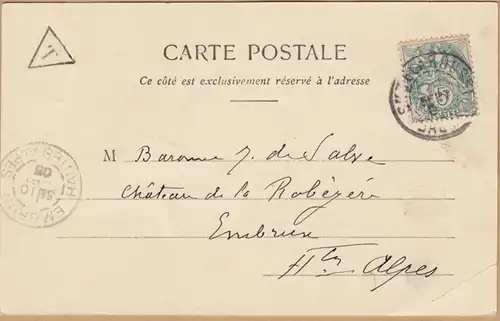 T
CARTE POSTALE
Ce côté est exclusivement réservé à l'adresse
M Baronne J. de Salve
Château de la Robéyère
Embrun
Htes Alpes
EMBRUN
HAUTES ALPES
05